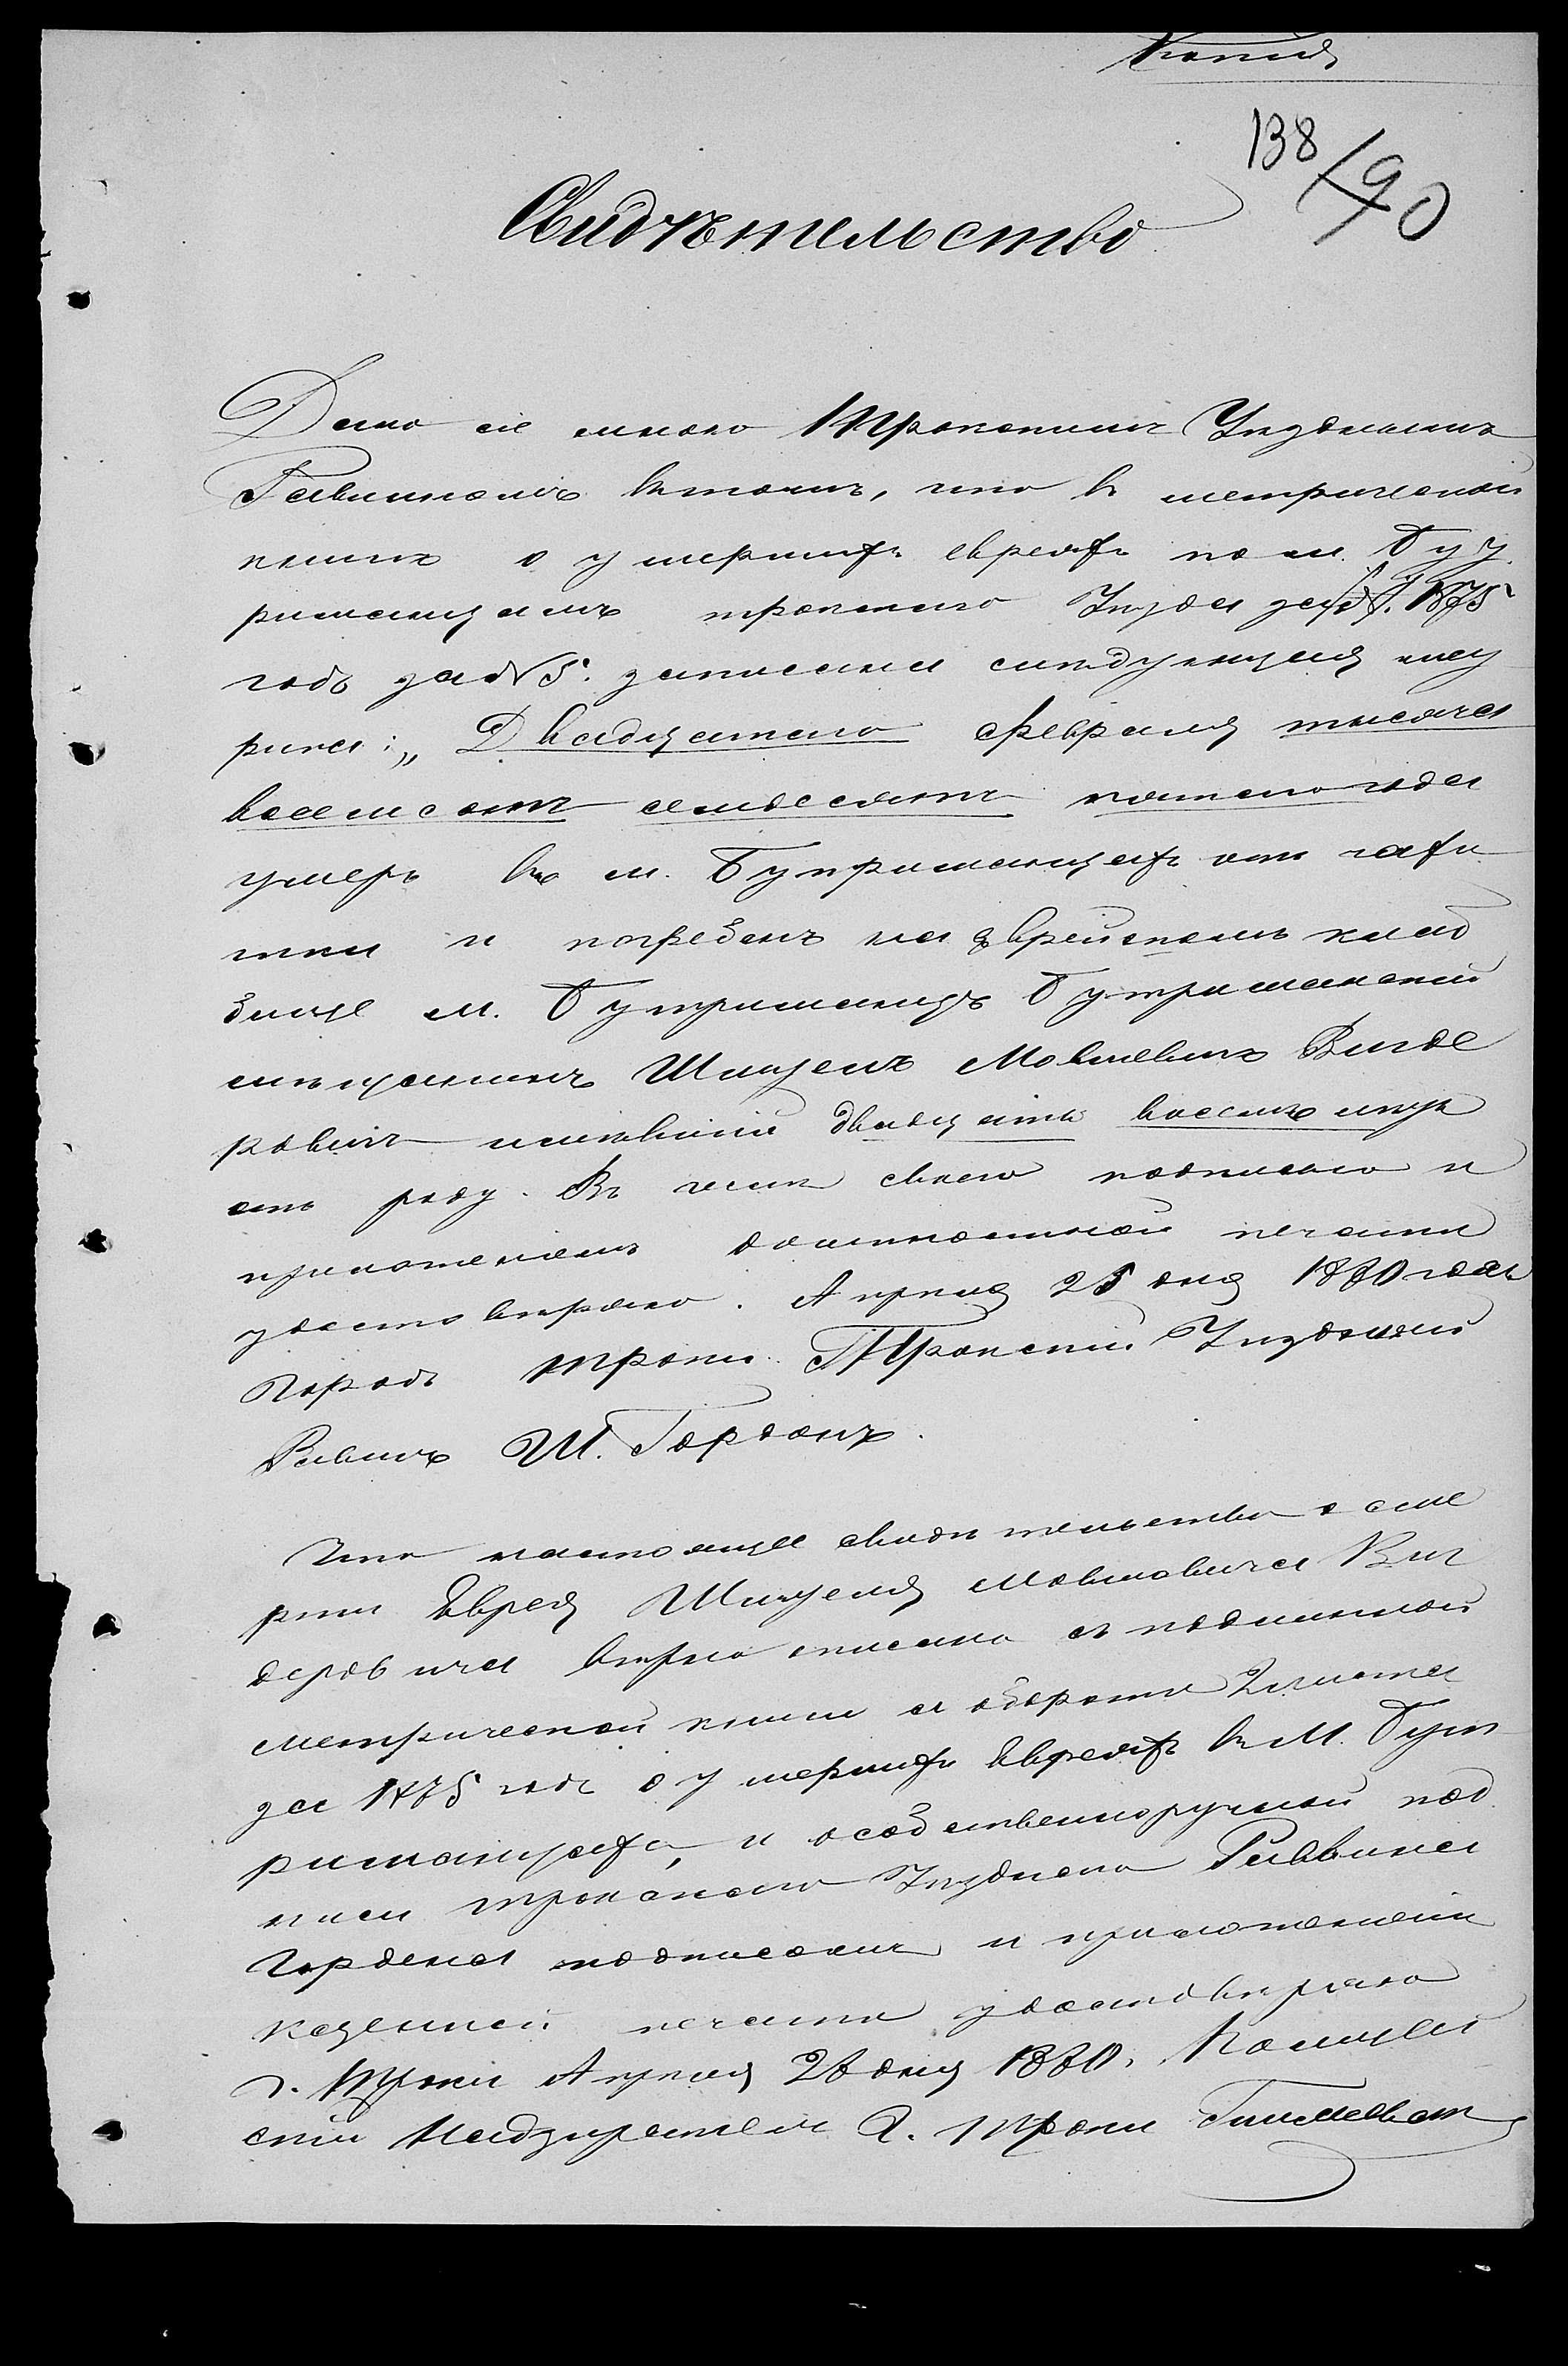 Копия
138/90
Свидѣтельство
Дано сіе мною Трокскимъ Уѣзднымъ
Раввиномъ въ томъ, что въ метрической
книгѣ о умершихъ евреяхъ по м. Бут
риманцамъ трокскаго Уѣзда за 1875
годъ за № 5. записана слѣдующая мет
рика: „Двадцатаго февраля тысяча
восемсотъ семдесятъ пятаго года
умеръ въ м. Бутриманцахъ отъ чахо
тки и погребенъ на еврейскомъ клад
бище м. Бутриманцъ Бутриманский
мѣщанинъ Шмуель Мовшевичъ Вигде
ровичъ имѣвшій двадцать восемь лѣтъ
отъ роду. Въ чемъ своею подписью и
приложеніемъ должностной печати
удостовѣряю. Апрѣля 25 дня 1880 года
Городъ Троки. Трокскій Уѣздный
Равинъ Ш. Гордонъ.
Что настоящее свидѣтельство о сме
рти Еврея Шмуеля Мовшовича Виг
деровича вѣрно списано съ подлинной
метрической книги съ оборота 2 листа
за 1875 годъ о умершихъ Евреяхъ въ М. Бут
риманцахъ, и особственноручной под
писи трокскаго Уѣзднаго Раввина
Гордона подписомъ и приложеніемъ
казенной печати удостовѣряю
г. Троки Апрѣля 26 дня 1880. Полицей
скій Надзиратель г. Троки